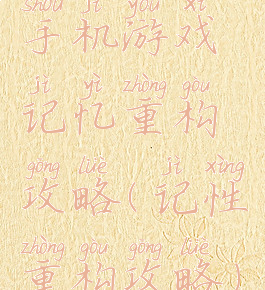 shǒu jī yóu xì
手机游戏
jì yì zhòng gòu
记忆重构
gōng lüè jì xìng
攻略(记性
zhòng gòu gōng lüè
重构攻略)